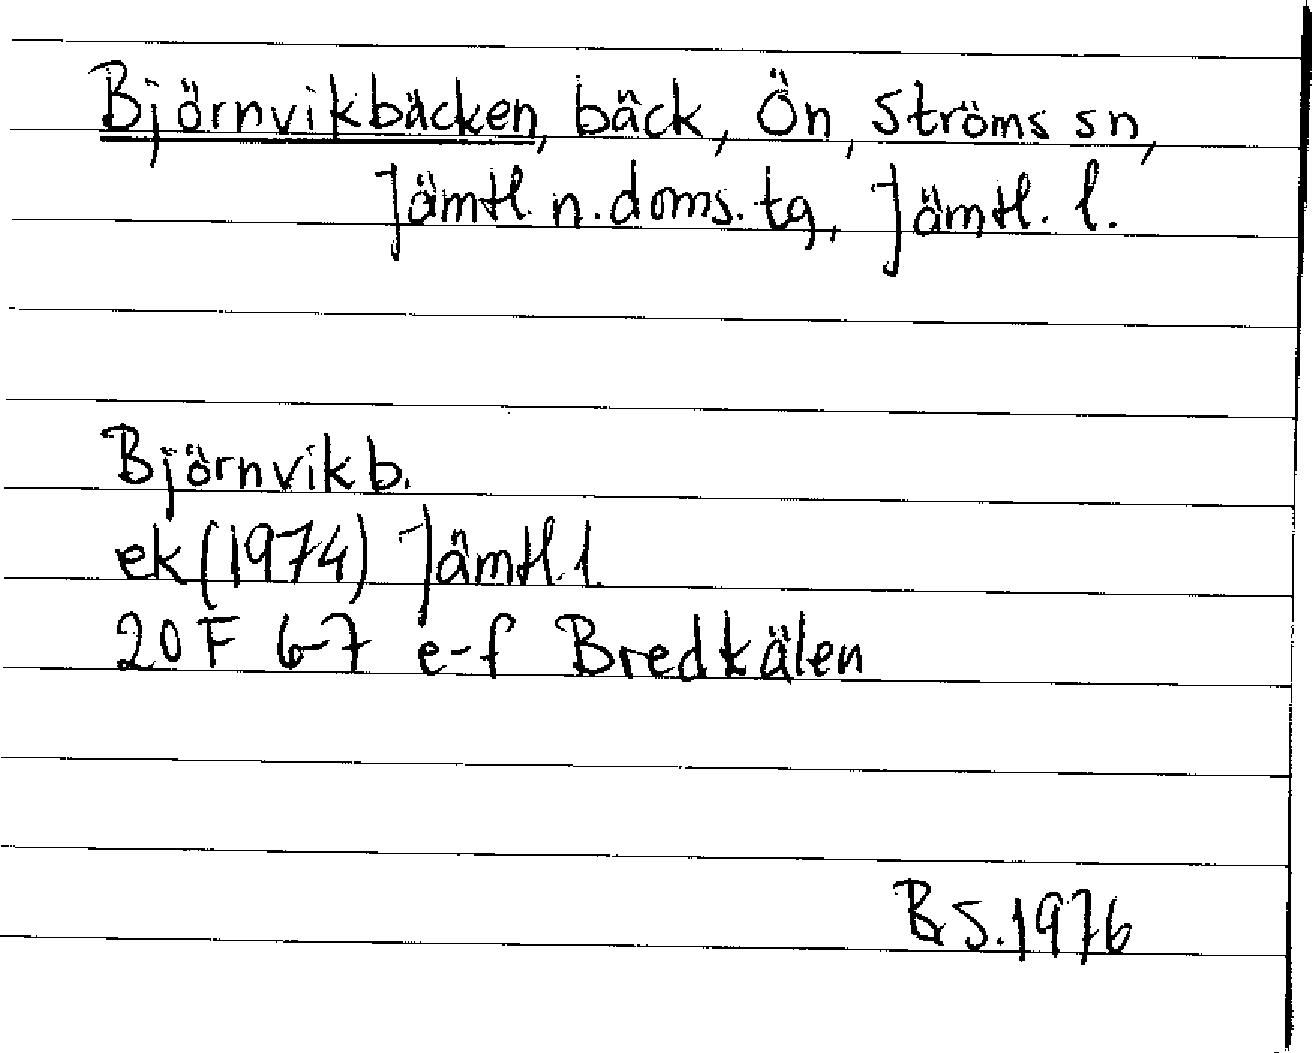 Björnvikbäcken, bäck, Ön, Ströms sn,
Jämtl. n. doms. tg, Jämtl. l.
Björnvikb.
ek (1974) Jämtl. l.
20 F 6-7 e-f Bredkälen
B.S. 1976